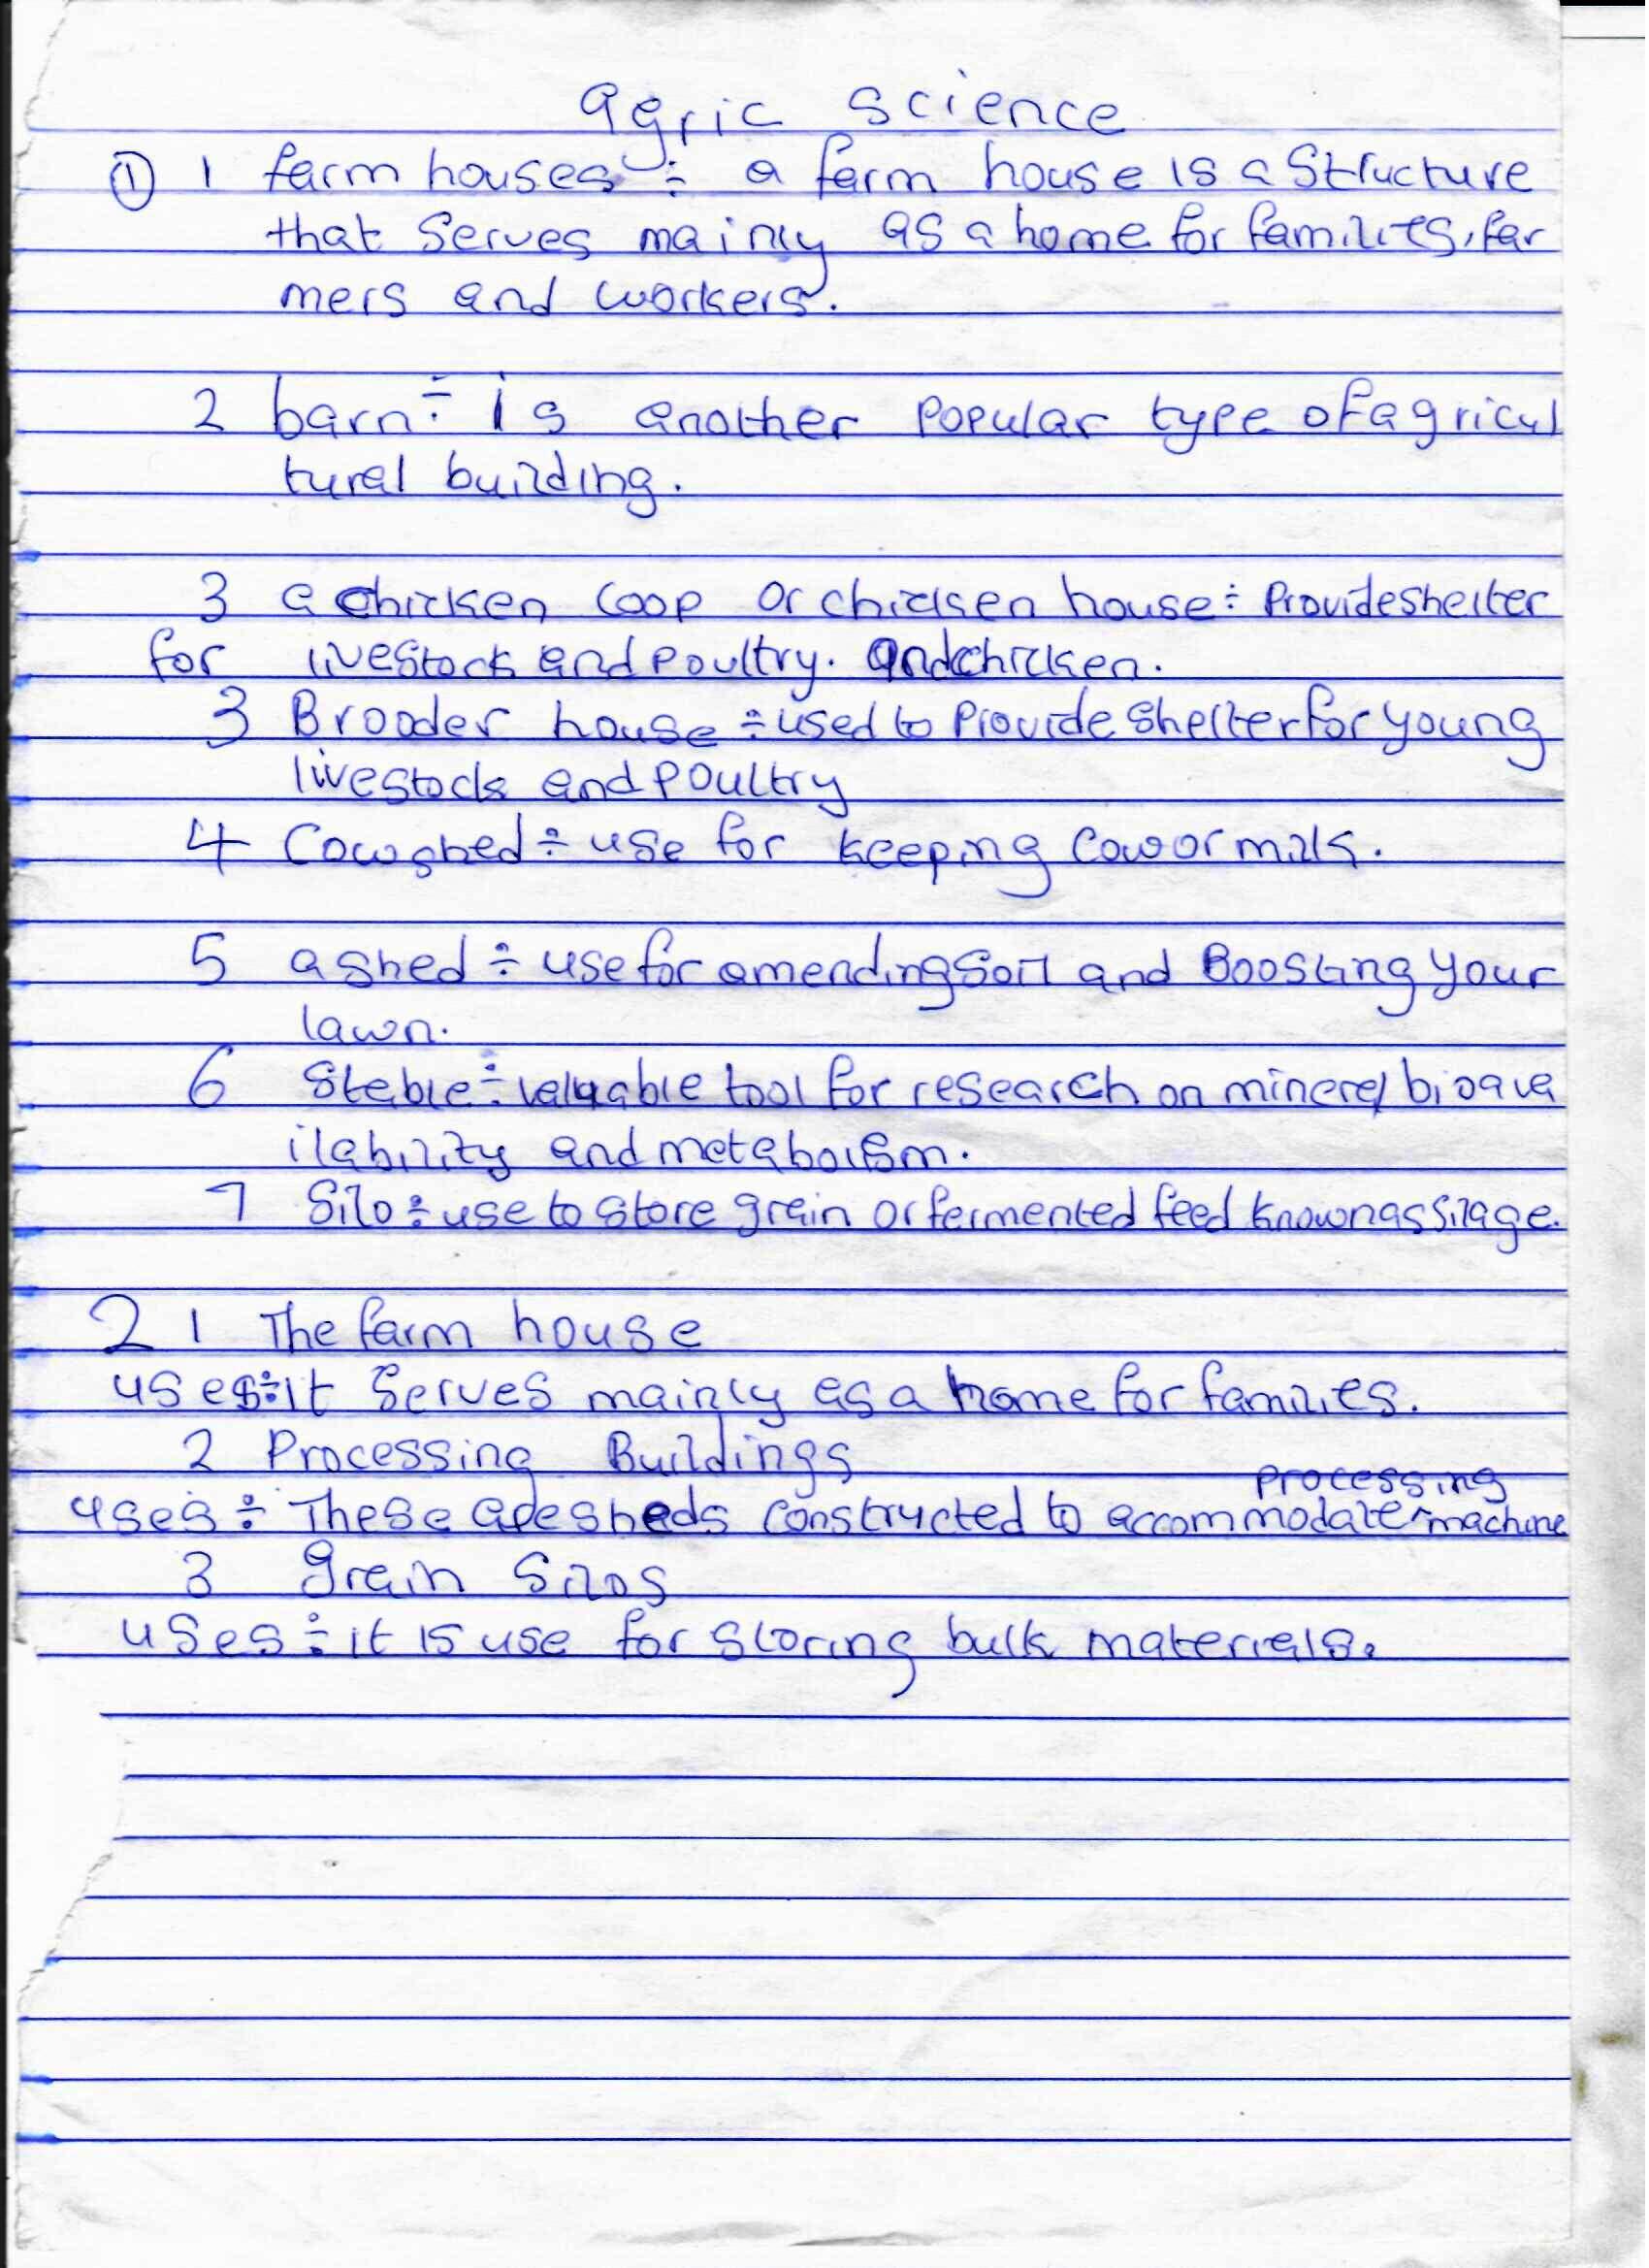 agric science
① 1 farm houses ÷ a farm house is a structure
that serves mainly as a home for families, far
mers and workers.
2 barn ÷ is another popular type of agricul
tural building.
3 a chicken coop or chicken house ÷ Provide shelter
for livestock and poultry. and chicken.
3 Brooder house ÷ used to provide shelter for young
livestock and poultry
4 Cowshed ÷ use for keeping cow or milk.
5 a shed ÷ use for amending soil and Boosting your
lawn.
6 Stable ÷ valuable tool for research on mineral bioava
ilability and metabolism.
7 Silo ÷ use to store grain or fermented feed known as silage.
2 1 The farm house
uses ÷ it serves mainly as a home for families.
2 Processing Buildings
uses ÷ These are sheds constructed to accommodate ^ processing machine
3 grain silos
uses ÷ it is use for storing bulk materials.